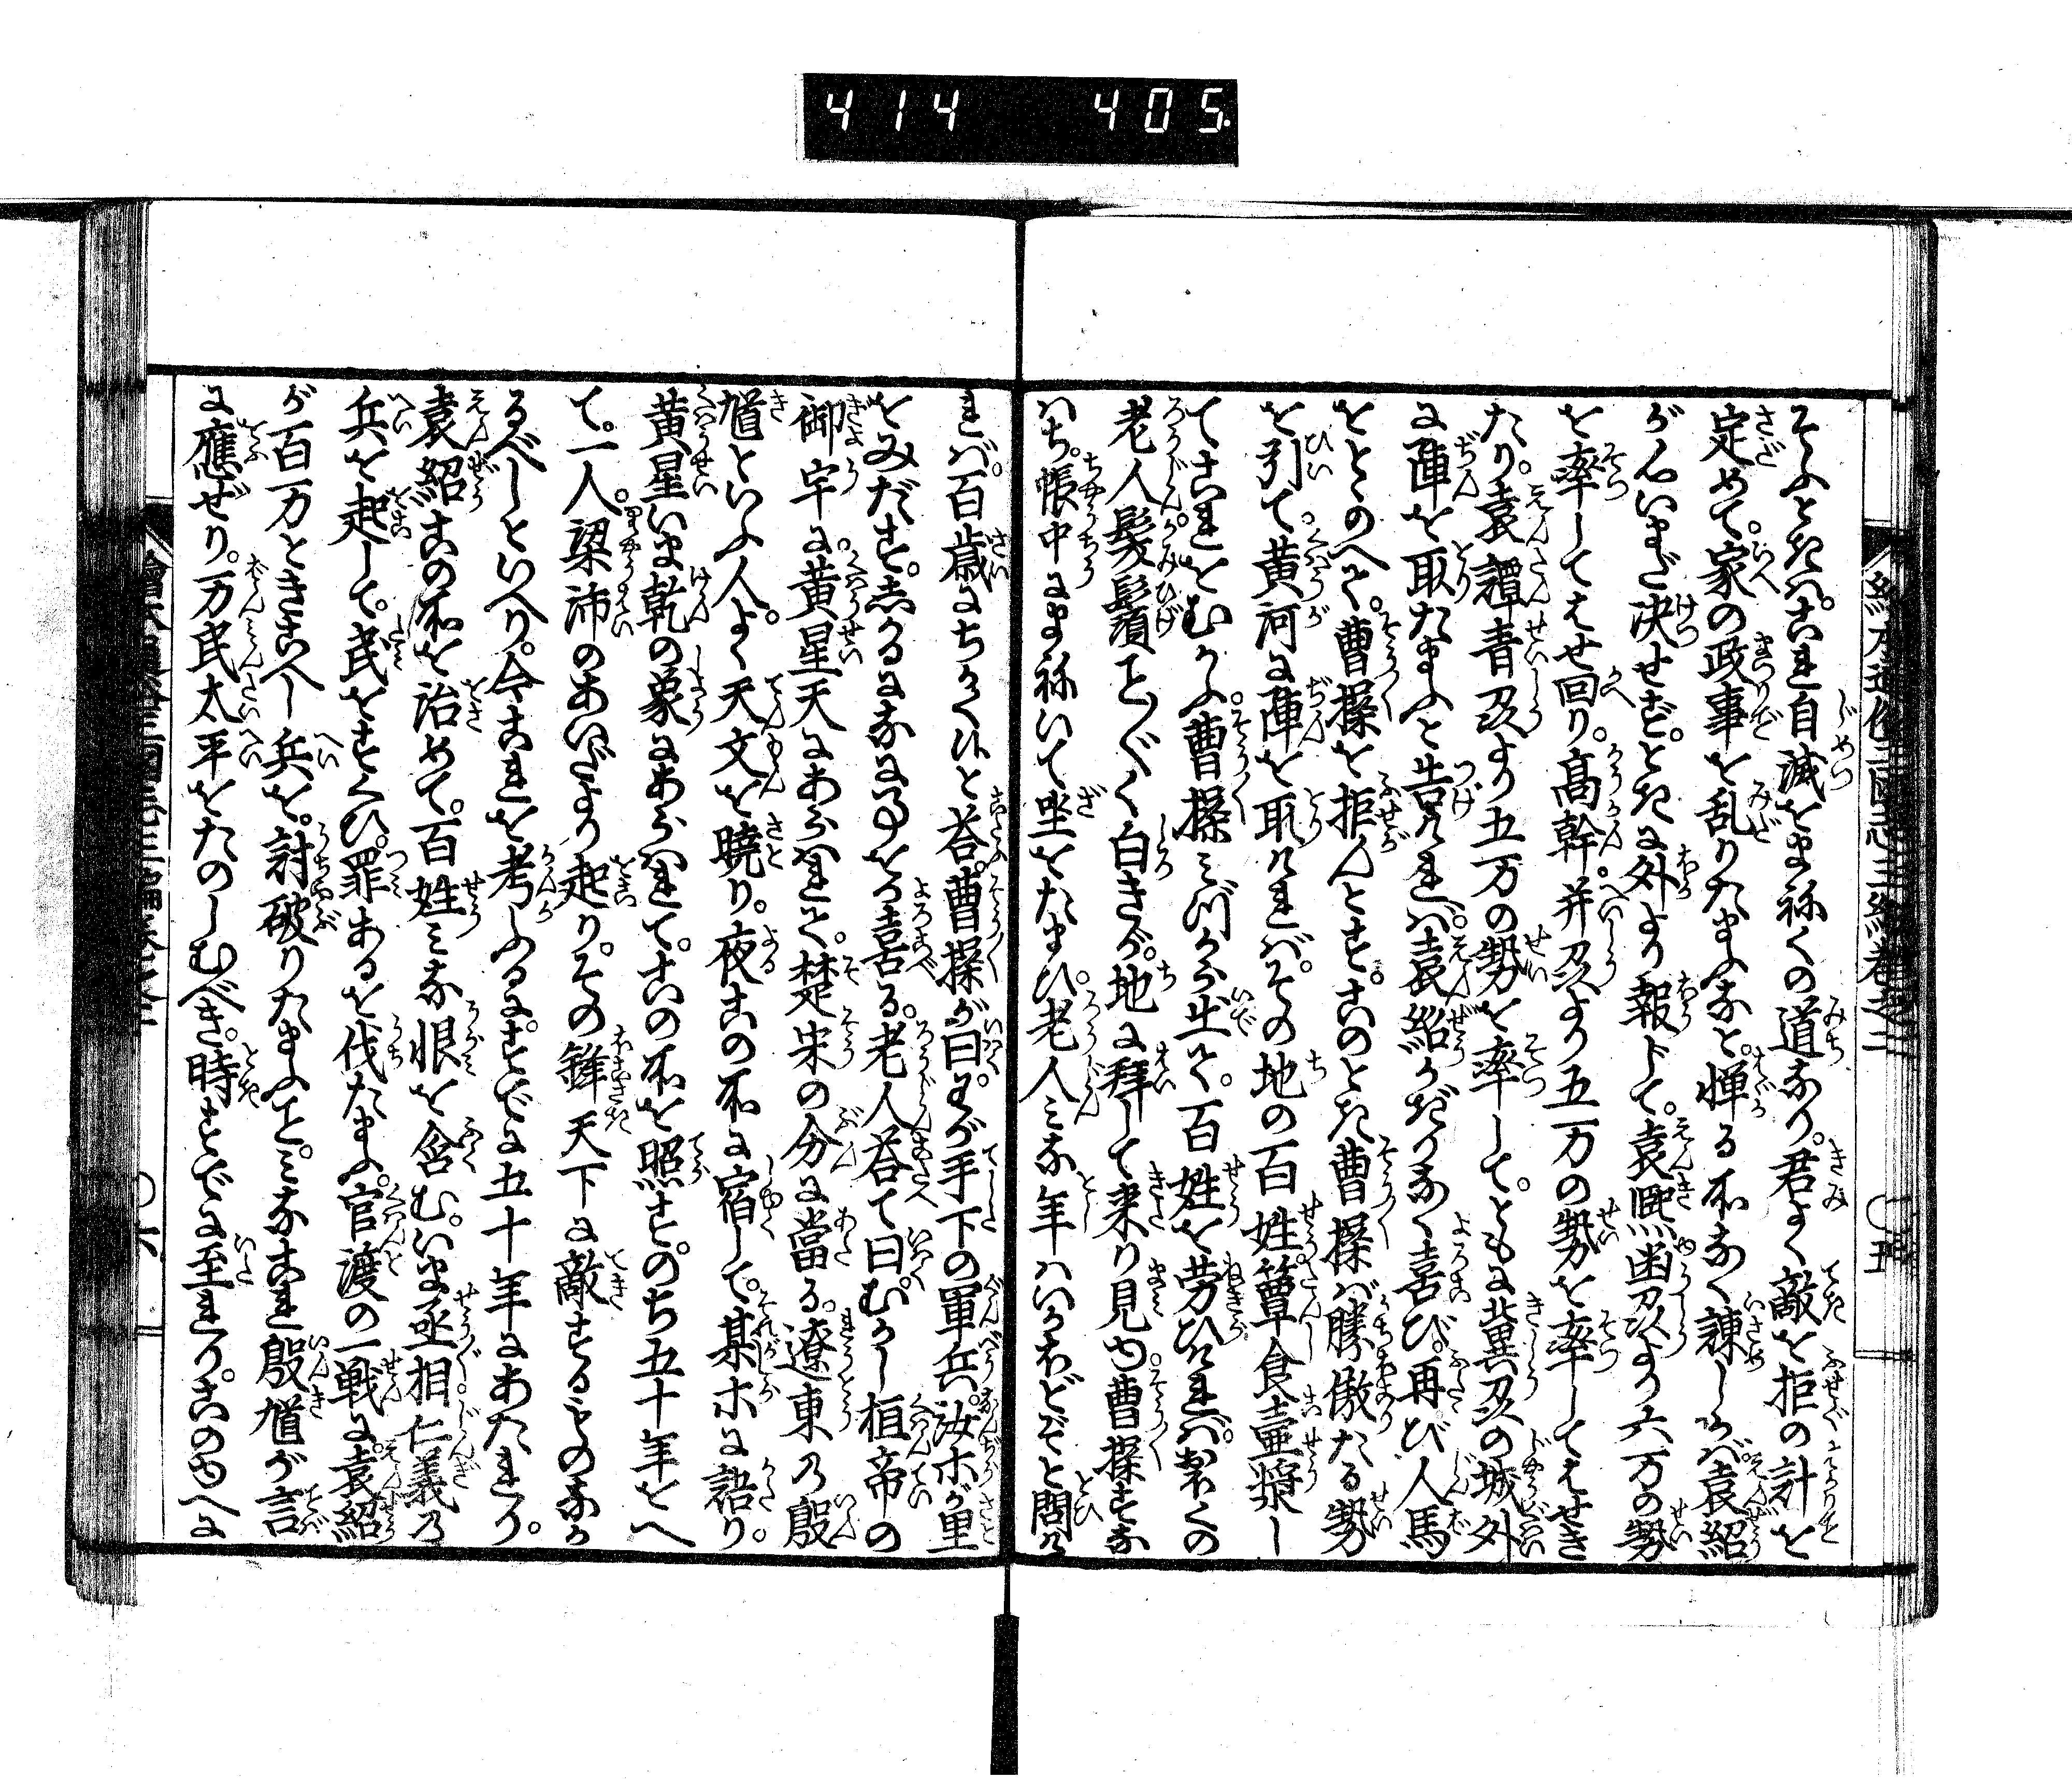 414 405.
そふときハ。これ自滅をまねくの道なり。君よく敵を拒の計を
定めて。家の政事を乱りたまふなと。憚る所なく諫しかバ。袁紹
が心いまだ決せず。とき に外より報じて。袁熈幽州より六万の勢
を率してはせ回り。高幹。并州より五万の勢を率してはせき
たり。袁譚青州より五万の勢を率して。ともに冀州の城外
に陣を取たまふと告けれバ。袁紹かぎりなく喜び。再び人馬
をとゝのへて。曹操を拒んとす。このとき曹操ハ勝傲たる勢
を引て。黄河に陣を取けれバ。その地の百姓。簞食壷漿し
てこれをむかふ。曹操みづから出て。百姓を労ひけれバ。あまたの
老人髪鬚こと〴〵く白きが。地に拝して来り見ゆ。曹操すな
ハち。帳中にまねいて坐をたまひ。老人ミな年ハいかほどぞと問け
れバ。百歳にちかくハと答。曹操が曰。わが手下の軍兵。汝ホが里
をみだす。しかるになに事をか喜る。老人答て曰。むかし桓帝の
御宇に。黄星天にあらハれて。楚宋の分に當る。遼東の殷
馗といふ人。よく天文を暁り。夜この所に宿して。某ホに語り。
黄星いま乾の象にあらハれて。この所を照す。のち五十年をへ
て。一人。梁沛のあいだより起り。その鋒天下に敵するものなか
るべしといへり。今これを考ふるに。すでに五十年にあたれり。
袁紹この所を治めて。百姓ミな恨を含む。いま丞相。仁義の
兵を起して。民をすくひ。罪あるを伐たまふ。官渡の一戦に。袁紹
が百万ときこへし兵を。討破りたまふこと。ミなこれ殷馗が言
に應ぜり。万民太平をたのしむべき。時すでに至れり。このゆへに